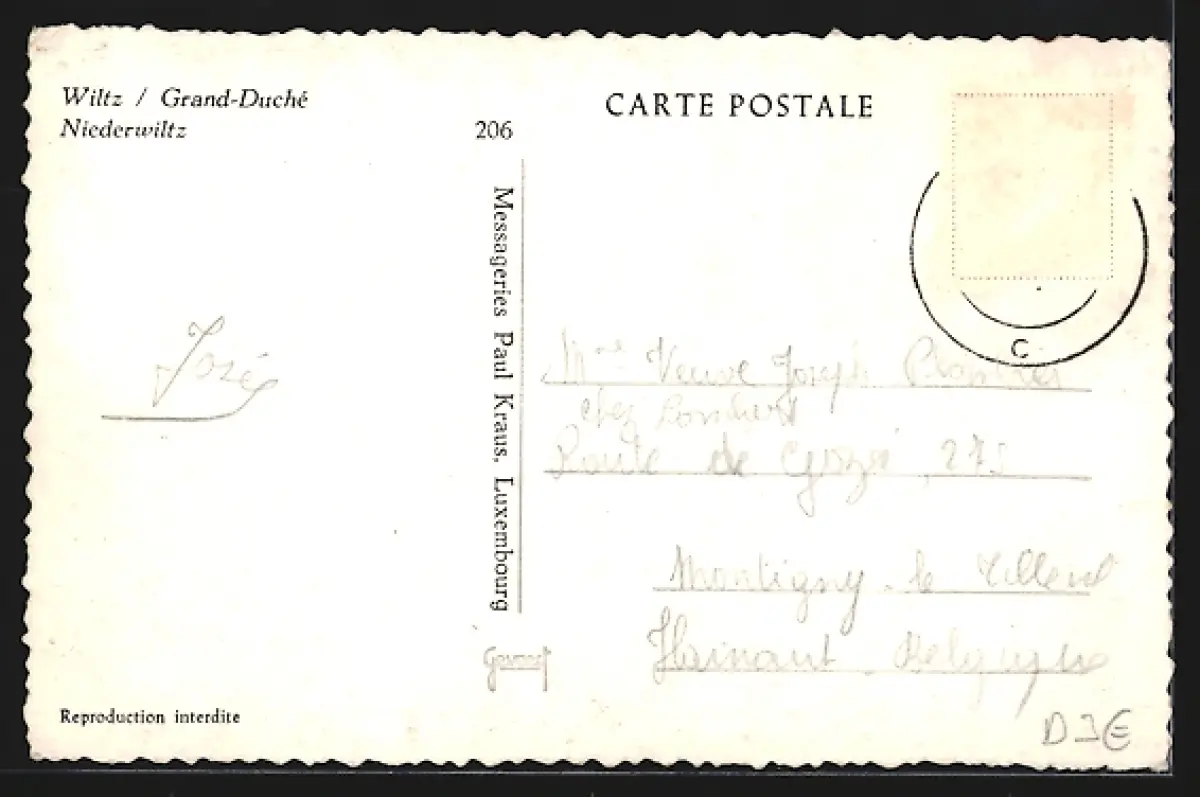 Wiltz / Grand-Duché
Niederwiltz
206
CARTE POSTALE
Messageries Paul Kraus, Luxembourg
C
José
Mme Veuve Joseph
chez
Route de Gozée, 275
Montigny-le Tilleul
Hainaut Belgique
Gevaert
Reproduction interdite